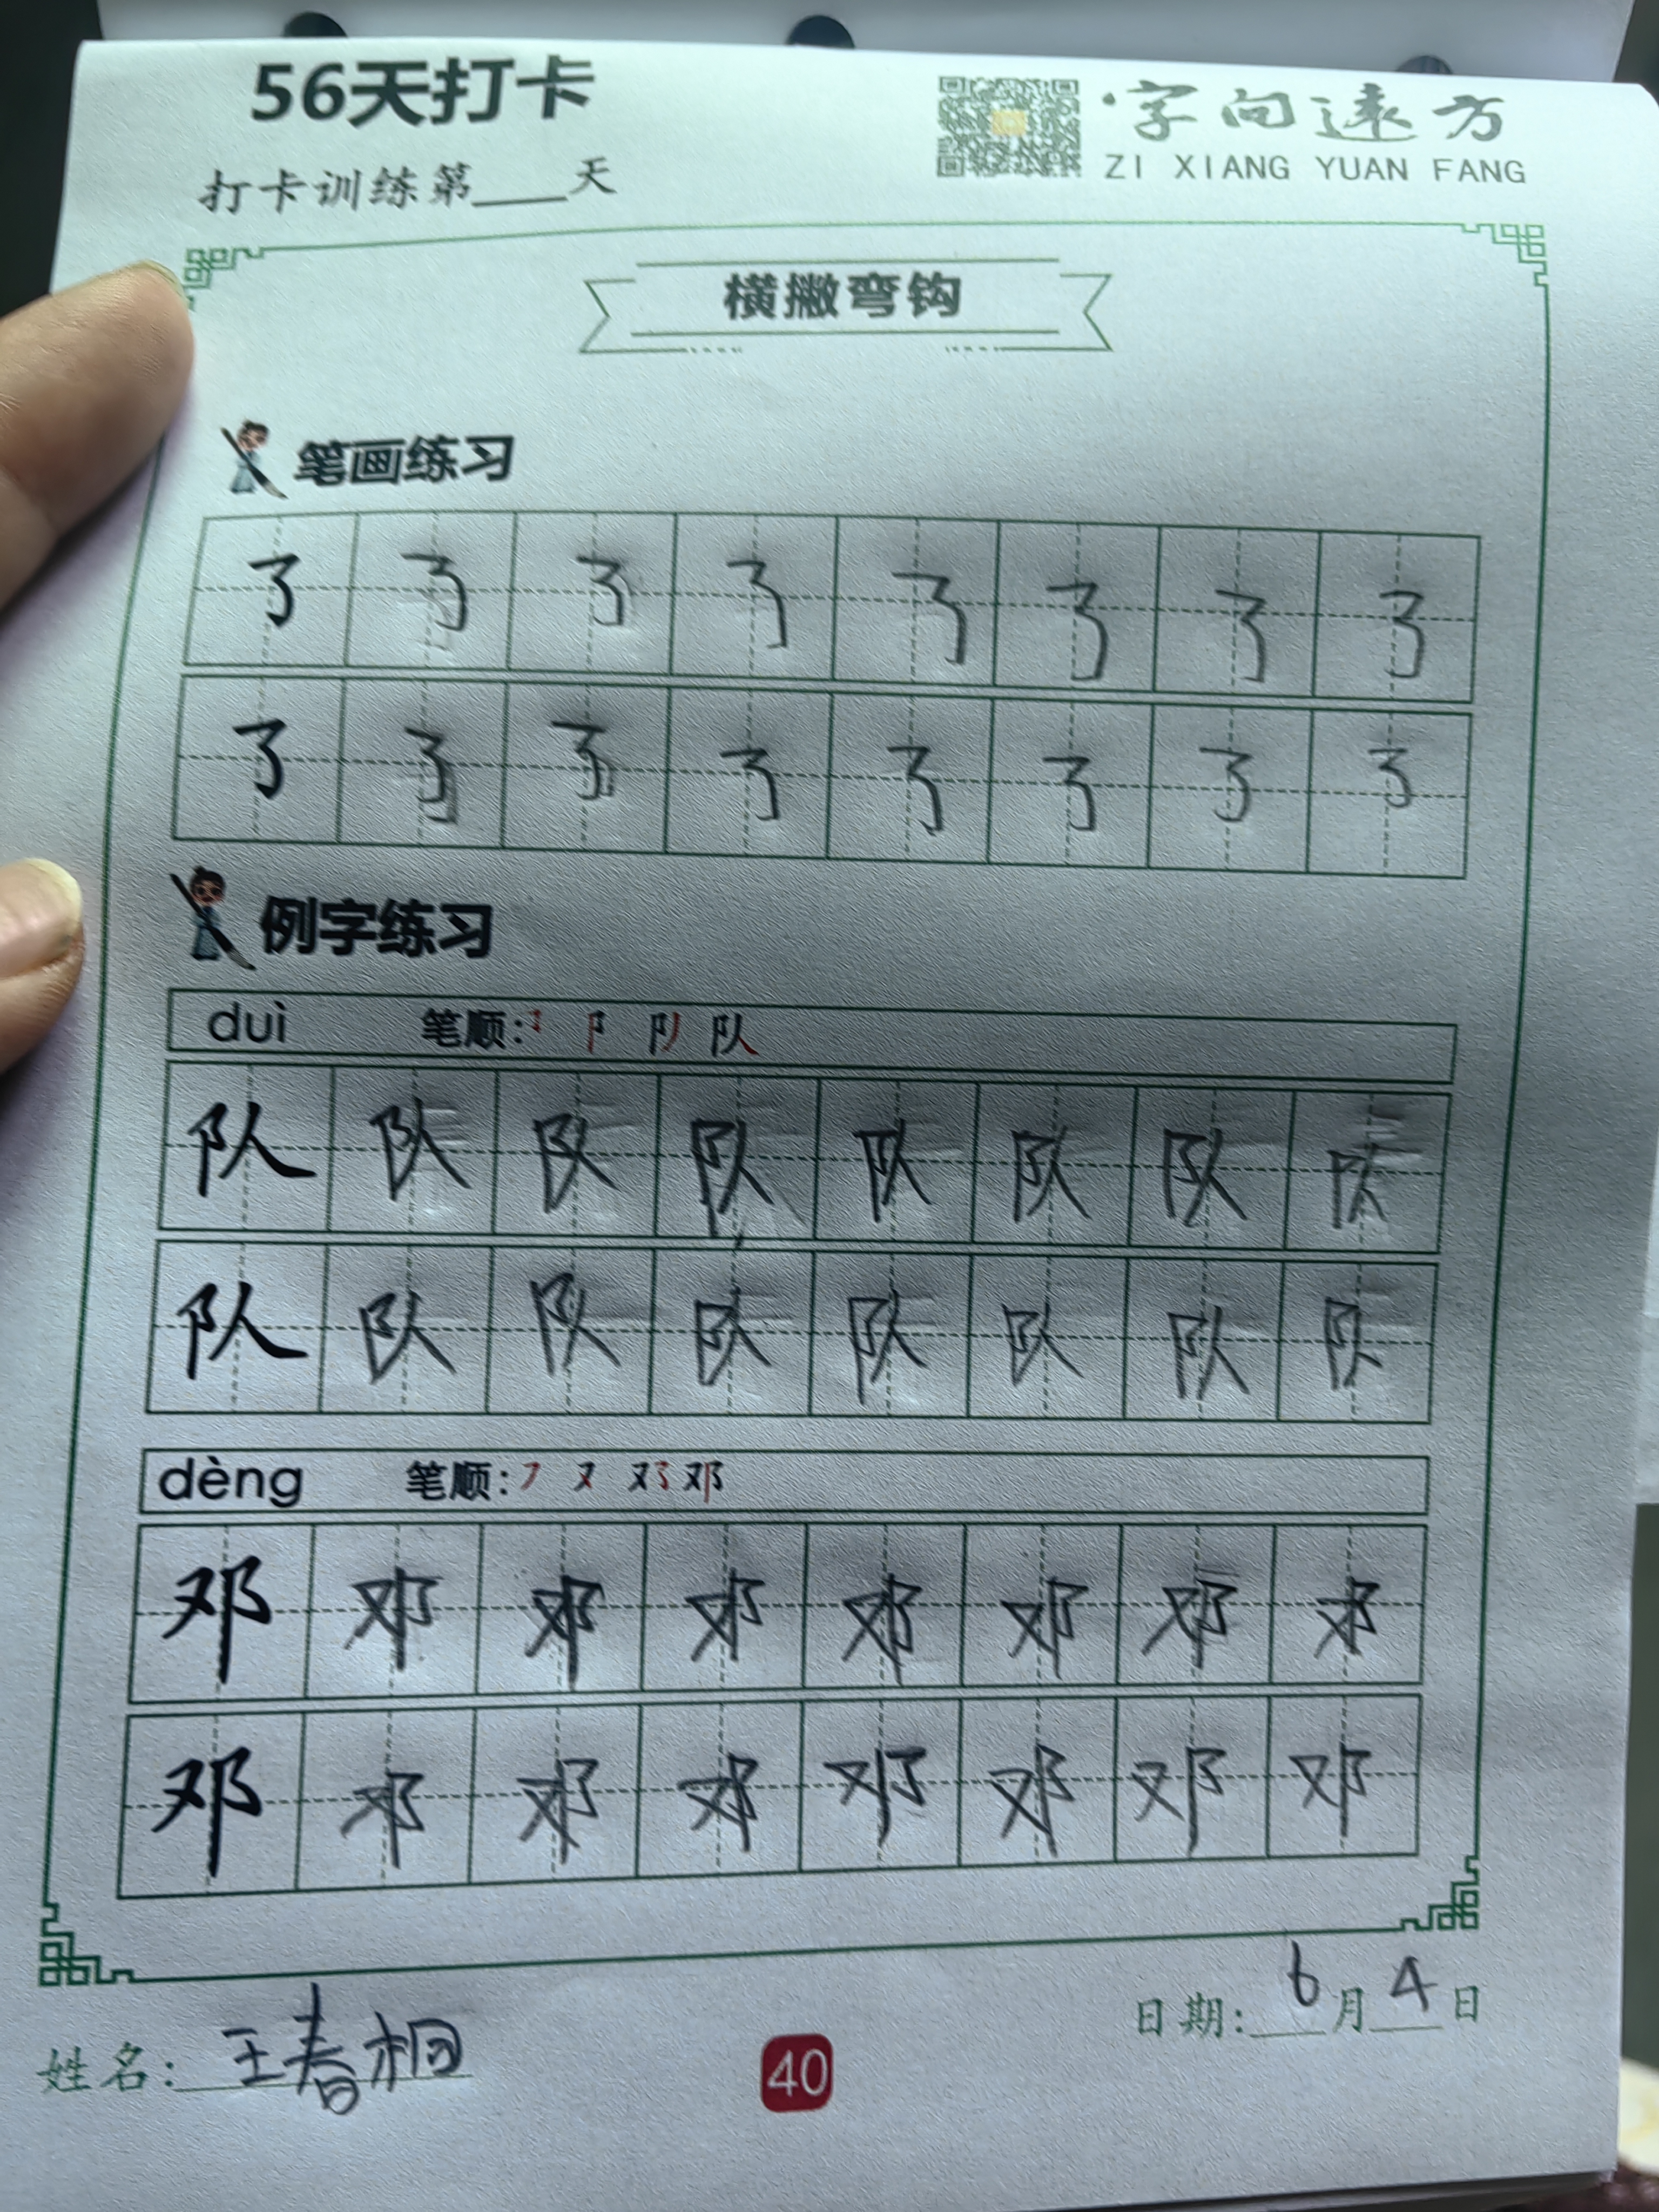 56天打卡
字向远方
打卡训练第___天
ZI XIANG YUAN FANG
横撇弯钩
笔画练习
㇌ ㇌ ㇌ ㇌ ㇌ ㇌ ㇌ ㇌
㇌ ㇌ ㇌ ㇌ ㇌ ㇌ ㇌ ㇌
例字练习
duì 笔顺: 队
队 队 队 队 队 队 队 队
队 队 队 队 队 队 队 队
dèng 笔顺: 邓
邓 邓 邓 邓 邓 邓 邓 邓
邓 邓 邓 邓 邓 邓 邓 邓
日期: 6月4日
姓名: 王春桐
40